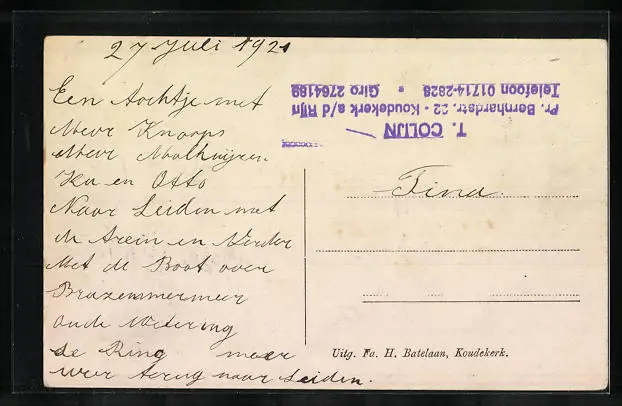 27 Juli 1921
Een tochtje met
Mevr Knaaps
Mevr
Ko en Otto
Naar Leiden met
de trein en verder
Met de Boot over
Brazemmermeer
oude Wetering
de Ring meer
weer terug naar Leiden.
T. COLIJN
Pr. Bernhardstr. 22 - Koudekerk a/d Rijn
Telefoon 01714-2828 * Giro 2764189
Tina
Uitg. Fa. H. Batelaan, Koudekerk.